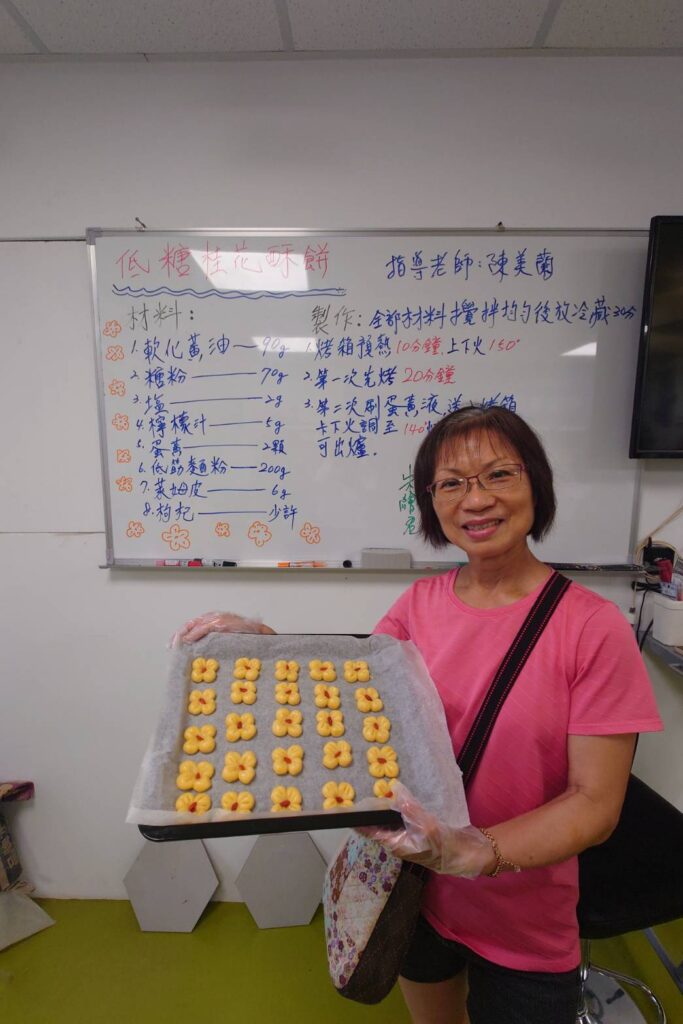 低糖桂花酥餅
指導老師:陳美蘭
材料:
1. 軟化黃油—90g
2. 糖粉—70g
3. 塩—2g
4. 檸檬汁—5g
5. 蛋黃—2顆
6. 低筋麵粉—200g
7. 萊姆皮—6g
8. 枸杞—少許
製作:全部材料攪拌均勻後放冷藏30分
1. 烤箱預熱10分鐘.上下火150°
2. 第一次先烤20分鐘
3. 第二次刷蛋黃液,送入烤箱
下火調至140°
可出爐.